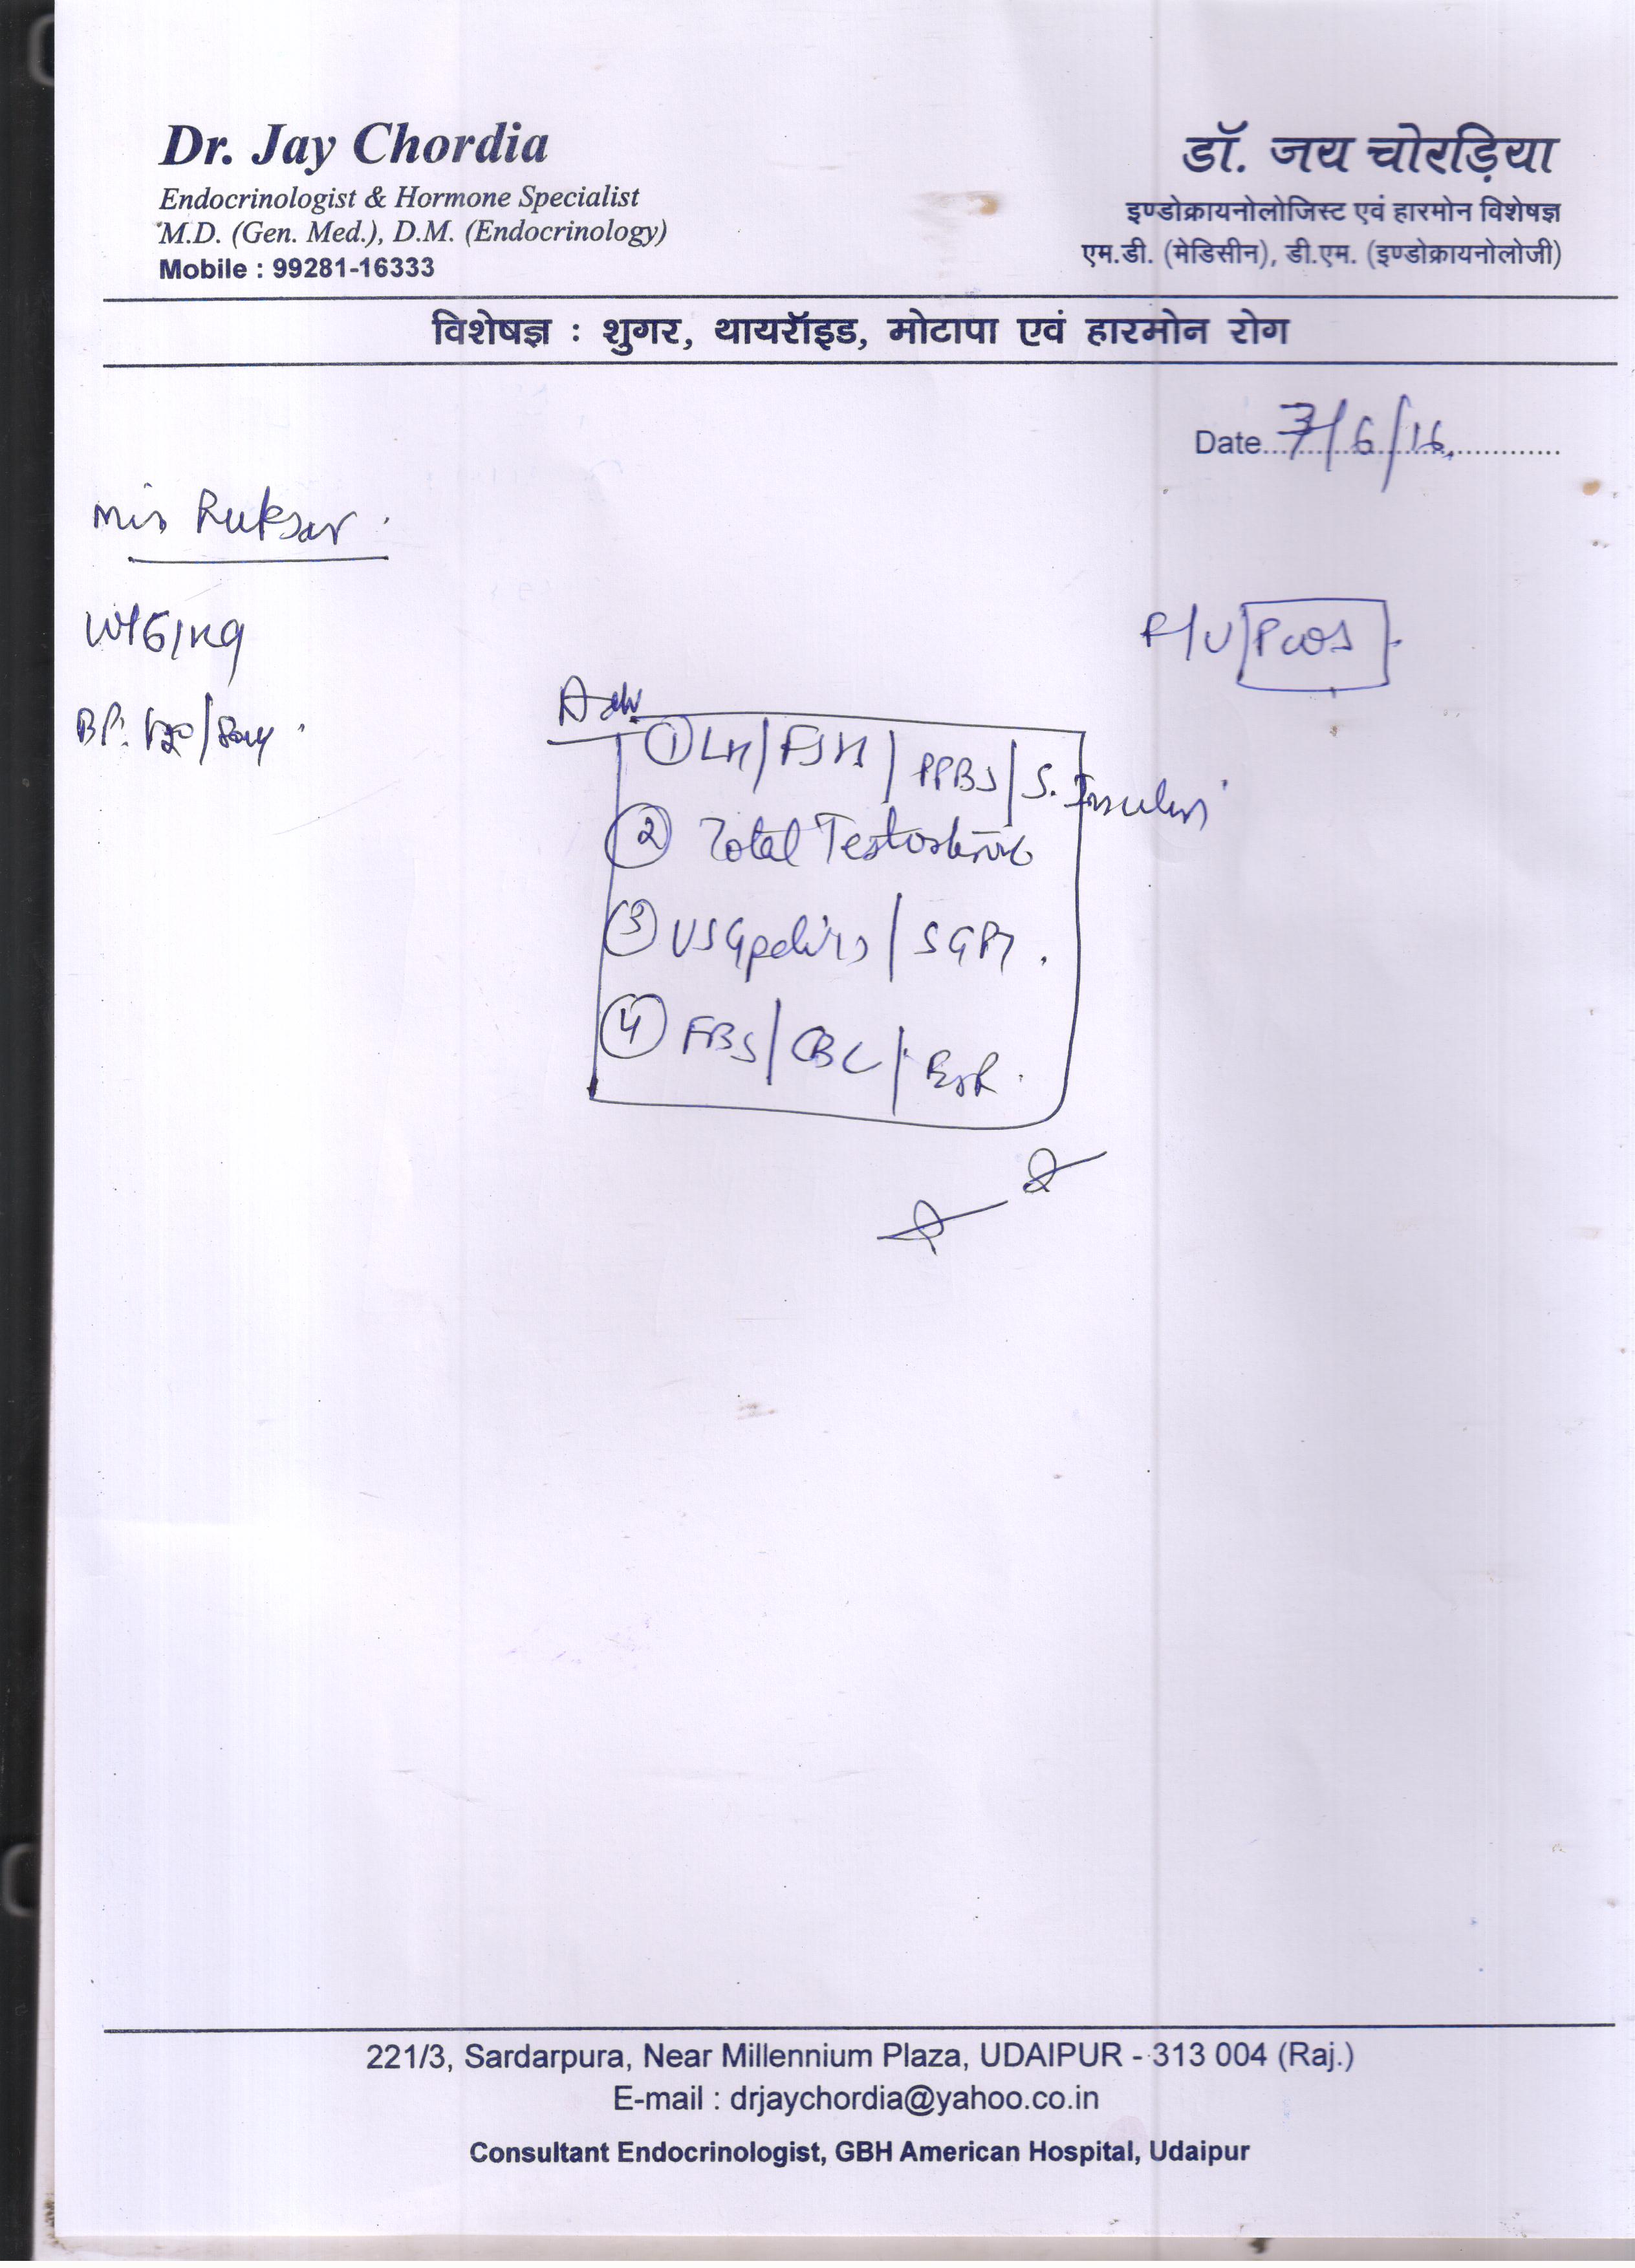 Dr. Jay Chordia
Endocrinologist & Hormone Specialist
M.D. (Gen. Med.), D.M. (Endocrinology)
Mobile : 99281-16333
डॉ. जय चोरड़िया
इण्डोक्रायनोलोजिस्ट एवं हारमोन विशेषज्ञ
एम.डी. (मेडिसीन), डी.एम. (इण्डोक्रायनोलोजी)
विशेषज्ञ : शुगर, थायरॉइड, मोटापा एवं हारमोन रोग
Date 7/6/16
Miss Ruksar
Wt 61 kg
F/U PCOS
BP:
Adv
① LH/FSH/PPBS/S. Insulin
② Total Testosterone
③ USG pelvis/SGPT
④ FBS/CBC/ESR
221/3, Sardarpura, Near Millennium Plaza, UDAIPUR - 313 004 (Raj.)
E-mail : drjaychordia@yahoo.co.in
Consultant Endocrinologist, GBH American Hospital, Udaipur